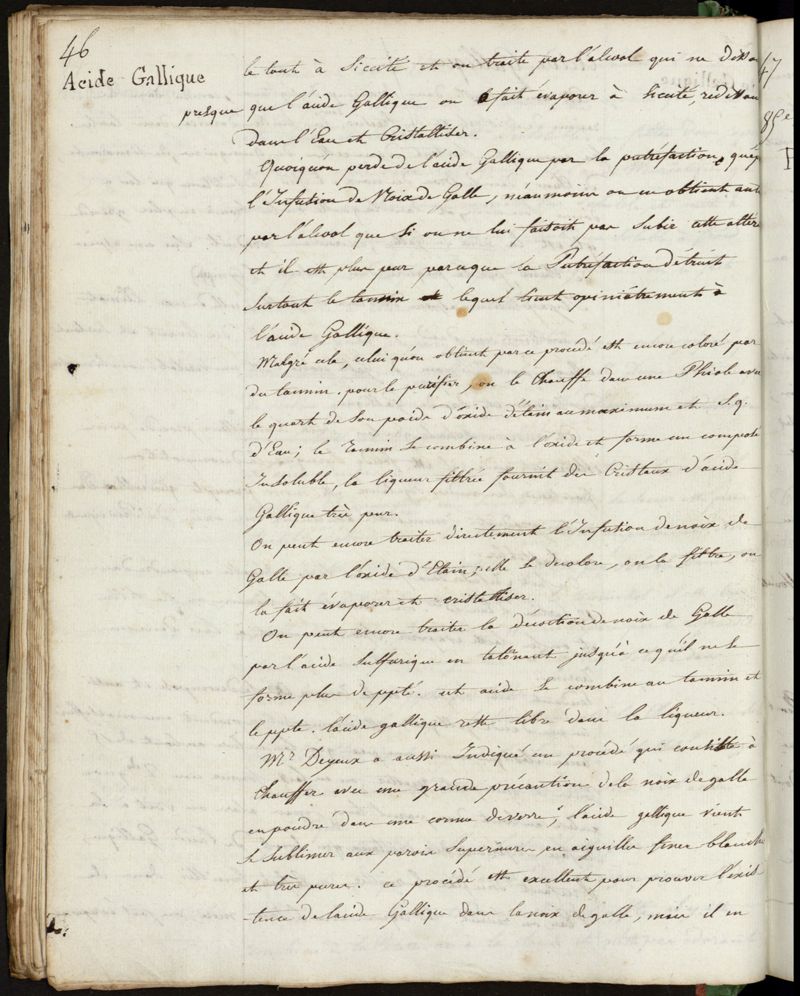 46
Acide Gallique
le tout à Siccité et on traite par l'alcool qui ne Dissou
presque que l'acide Gallique on fait évaporer à Siccité, redissou
dans l'Eau et Cristalliser.
Quoiqu'on perde de l'acide Gallique par la putréfaction
l'Infusion de Noix de Galle, néanmoins on en obtient
par l'alcool que Si on ne lui faisoit pas Subir cette altér
et il est plus pur parceque la Putréfaction détruit
Surtout le tannin lequel tient opiniâtrement à
l'acide Gallique.
Malgré cela, celui qu'on obtient par ce procédé est encore coloré par
du tannin. pour le purifier, on le Chauffe dans une Phiole avec
le quart de Son poids d'oxide d'étain au maximum et S. q.
d'Eau; le Tannin Se combine à l'oxide et forme un composé
Insoluble, la liqueur filtrée fournit des Cristaux d'acide
Gallique très pur.
On peut encore traiter directement l'Infusion de noix de
Galle par l'oxide d'Etain; elle Se decolore, on la filtre, on
la fait évaporer et cristalliser.
On peut encore traiter la décoction de noix de Galle
par l'acide Sulfurique en tatônant jusqu'à ce qu'il ne Se
forme plus de ppté. cet acide Se combine au tannin et
le ppte. l'acide gallique reste libre dans la liqueur.
Mr Deyeux a aussi Indiqué un procédé qui consiste à
Chauffer avec une grande précaution de la noix de galle
en poudre dans une cornue de verre; l'acide gallique vient
Se Sublimer aux parois Superieures en aiguilles fines blanches
et très pures. ce procédé est excellent pour prouver l'exis
tence de l'acide Gallique dans la noix de galle, mais il en
47